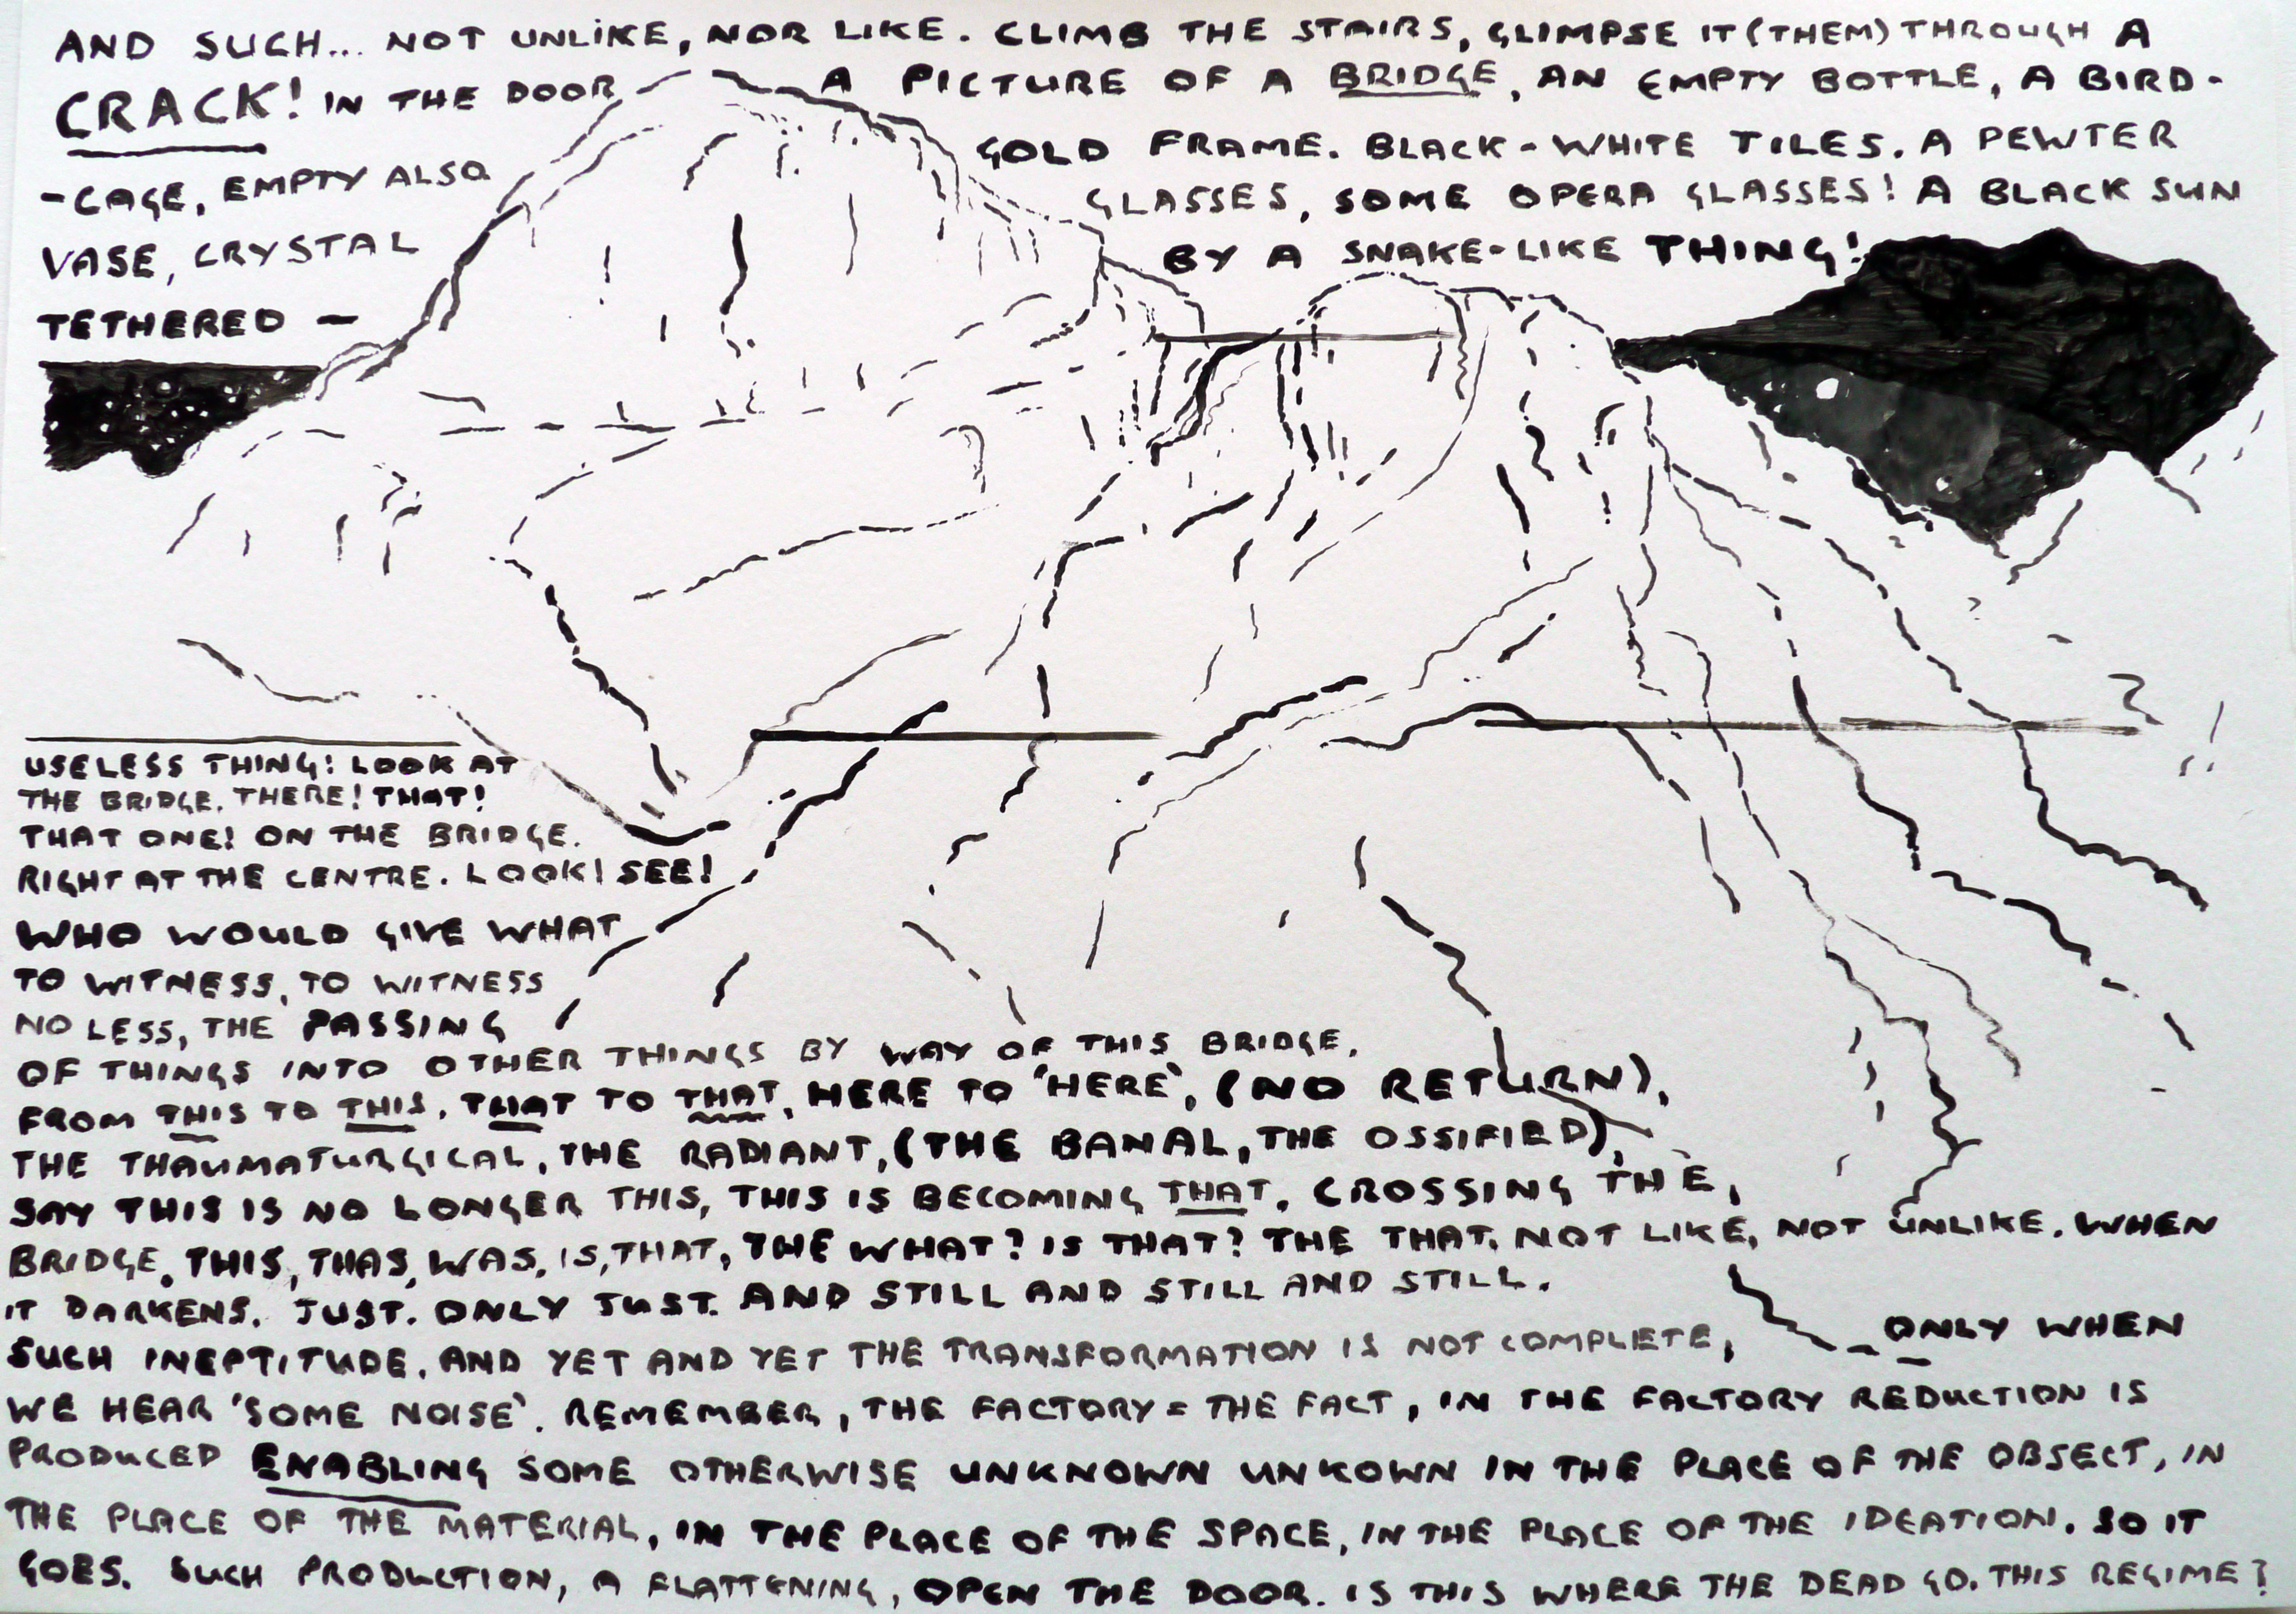 AND SUCH... NOT UNLIKE, NOR LIKE. CLIMB THE STAIRS, GLIMPSE IT (THEM) THROUGH A
CRACK! IN THE DOOR A PICTURE OF A BRIDGE, AN EMPTY BOTTLE, A BIRD-
-CAGE, EMPTY ALSO GOLD FRAME. BLACK-WHITE TILES. A PEWTER
VASE, CRYSTAL GLASSES, SOME OPERA GLASSES! A BLACK SUN
TETHERED — BY A SNAKE-LIKE THING!
USELESS THING! LOOK AT
THE BRIDGE. THERE! THAT!
THAT ONE! ON THE BRIDGE.
RIGHT AT THE CENTRE. LOOK! SEE!
WHO WOULD GIVE WHAT
TO WITNESS, TO WITNESS
NO LESS, THE PASSING
OF THINGS INTO OTHER THINGS BY WAY OF THIS BRIDGE.
FROM THIS TO THIS. THAT TO THAT. HERE TO 'HERE', (NO RETURN),
THE THAUMATURGICAL, THE RADIANT, (THE BANAL, THE OSSIFIED),
SAY THIS IS NO LONGER THIS, THIS IS BECOMING THAT. CROSSING THE,
BRIDGE. THIS, THAS, WAS, IS, THAT, THE WHAT? IS THAT? THE THAT. NOT LIKE, NOT UNLIKE. WHEN
IT DARKENS. JUST. ONLY JUST. AND STILL AND STILL AND STILL.
SUCH INEPTITUDE. AND YET AND YET THE TRANSFORMATION IS NOT COMPLETE, ONLY WHEN
WE HEAR 'SOME NOISE'. REMEMBER, THE FACTORY = THE FACT, IN THE FACTORY REDUCTION IS
PRODUCED ENABLING SOME OTHERWISE UNKNOWN UNKOWN IN THE PLACE OF THE OBJECT, IN
THE PLACE OF THE MATERIAL, IN THE PLACE OF THE SPACE, IN THE PLACE OF THE IDEATION. SO IT
GOES. SUCH PRODUCTION, A FLATTENING, OPEN THE DOOR. IS THIS WHERE THE DEAD GO. THIS REGIME?